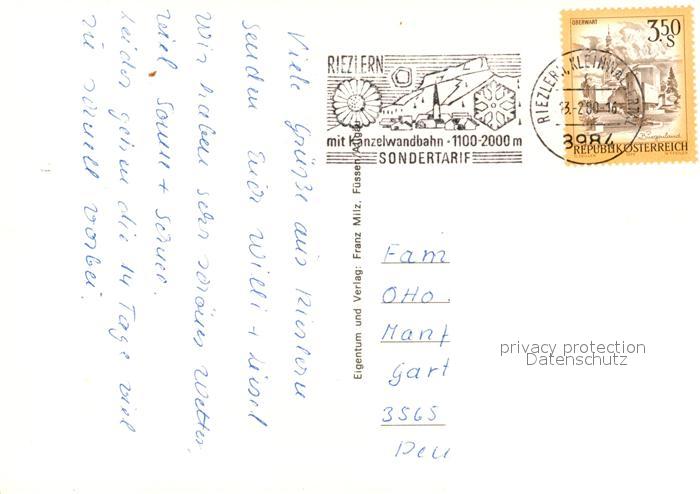 Viele Grüße aus Riezlern
senden Euch Willi + Liesel
Wir haben sehr schönes Wetter,
viel Sonne + Schnee.
Leider gehen die 14 Tage viel
zu schnell vorbei.
Eigentum und Verlag: Franz Milz, Füssen/Allgäu
RIEZLERN
mit Kanzelwandbahn · 1100-2000 m
SONDERTARIF
RIEZLERN, KLEINWALSERTAL
3984
OBERWART
3.50
S
Burgenland
REPUBLIK ÖSTERREICH
Fam
Otto
Manf
Gart
3565
Deu
privacy protection
Datenschutz